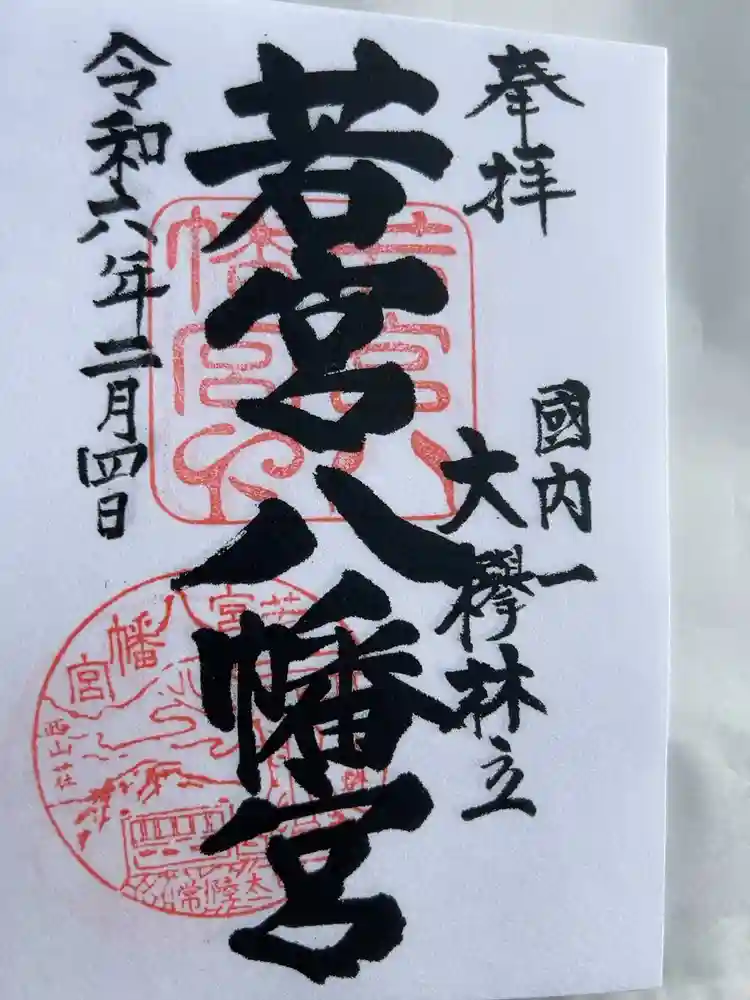 奉拝
國内一
大欅林立
若宮八幡宮
令和六年二月四日
若宮八
幡宮
若宮八幡宮
西山荘
常陸太